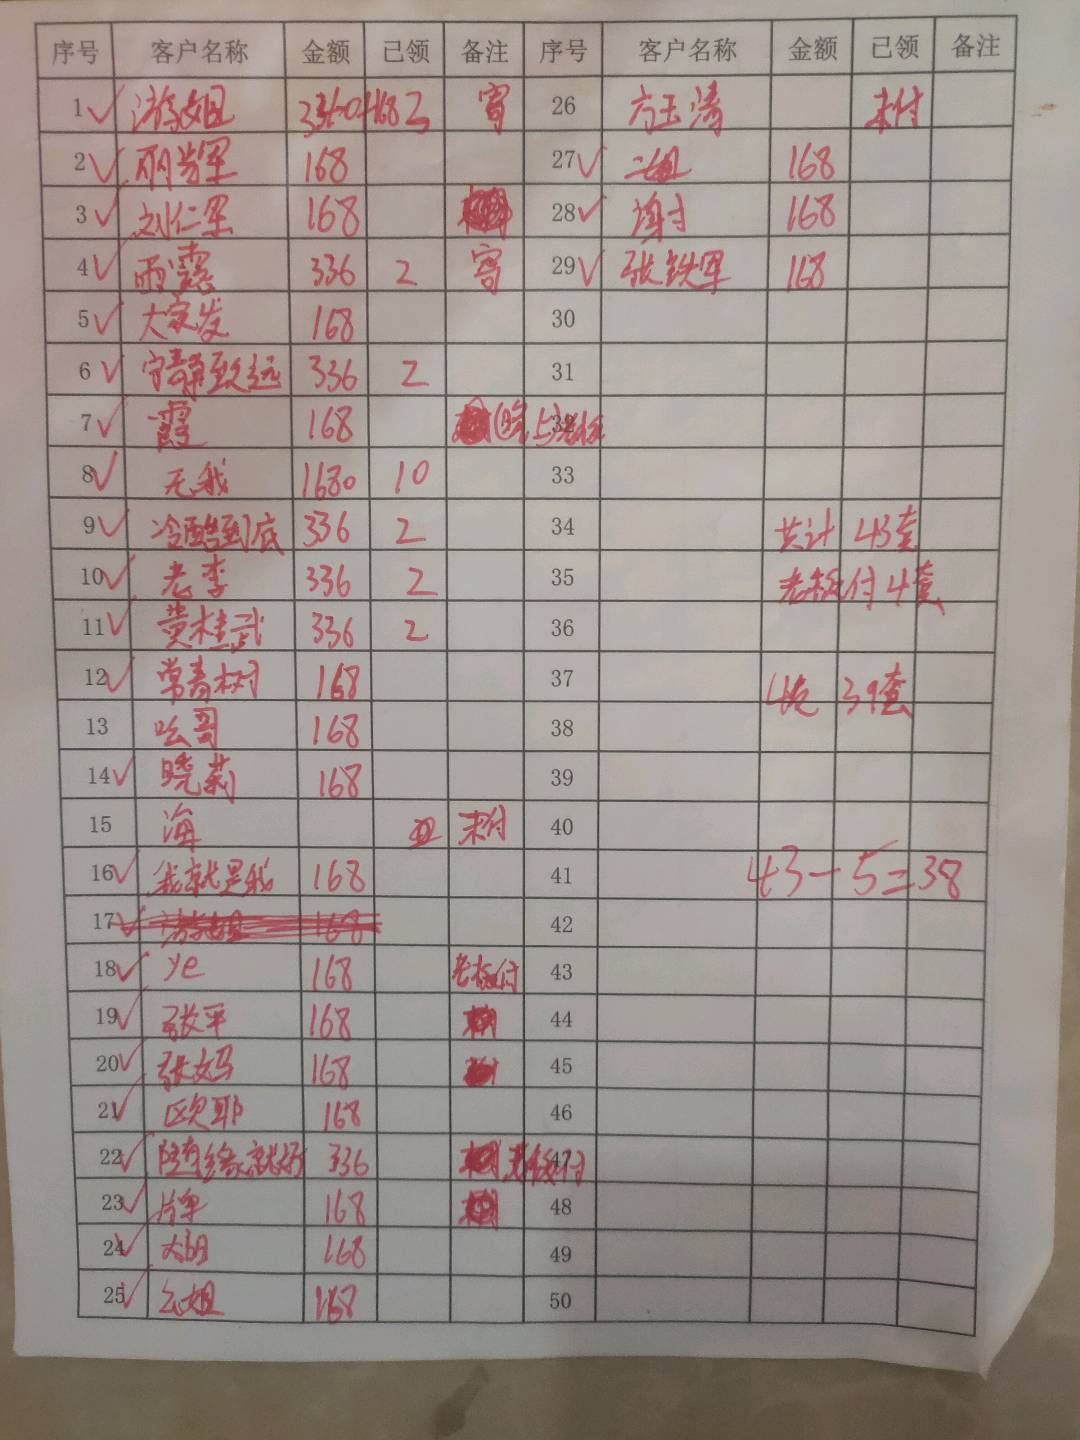 序号 客户名称 金额 已领 备注 序号 客户名称 金额 已领 备注
1 游姐 336 168 3 寄 26 方玉涛 未付
2 168 27 二姐 168
3 刘仁军 168 28 谢才 168
4 雨露 336 2 寄 29 张铁军 168
5 大家发 168 30
6 宁静致远 336 2 31
7 霞 168 32
8 无我 1680 10 33
9 冷酷到底 336 2 34 共计 43套
10 老李 336 2 35 老板付4套
11 黄桂武 336 2 36
12 常青树 168 37 39套
13 哥 168 38
14 晓莉 168 39
15 海 未付 40
16 我就是我 168 41 43-5=38
17 游姐 168 42
18 ye 168 老板付 43
19 张平 168 44
20 张妈 168 45
21 欧耶 168 46
22 随缘就好 336 老板付 47
23 168 48
24 168 49
25 168 50